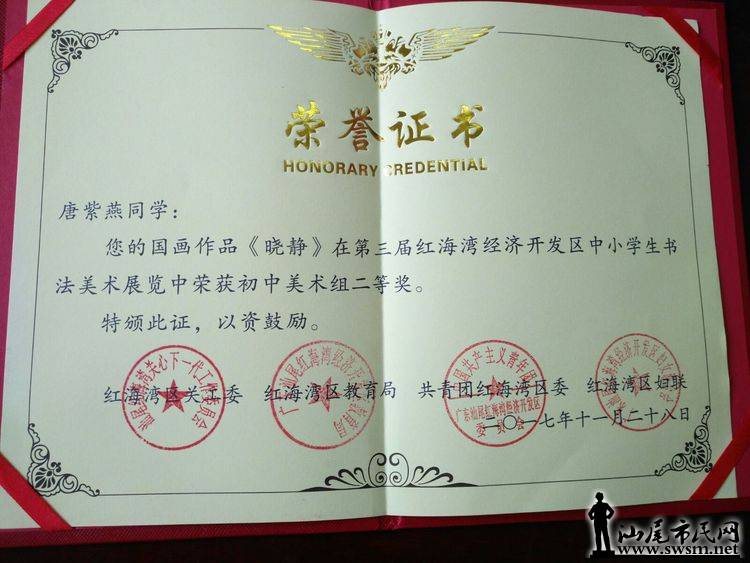 荣誉证书
HONORARY CREDENTIAL
唐紫燕同学：
您的国画作品《晓静》在第三届红海湾经济开发区中小学生书
法美术展览中荣获初中美术组二等奖。
特颁此证，以资鼓励。
红海湾区关工委 红海湾区教育局 共青团红海湾区委 红海湾区妇联
二〇一七年十一月二十八日
广东汕尾红海湾经济开发区
委员会
汕尾市民网
www.swsm.net